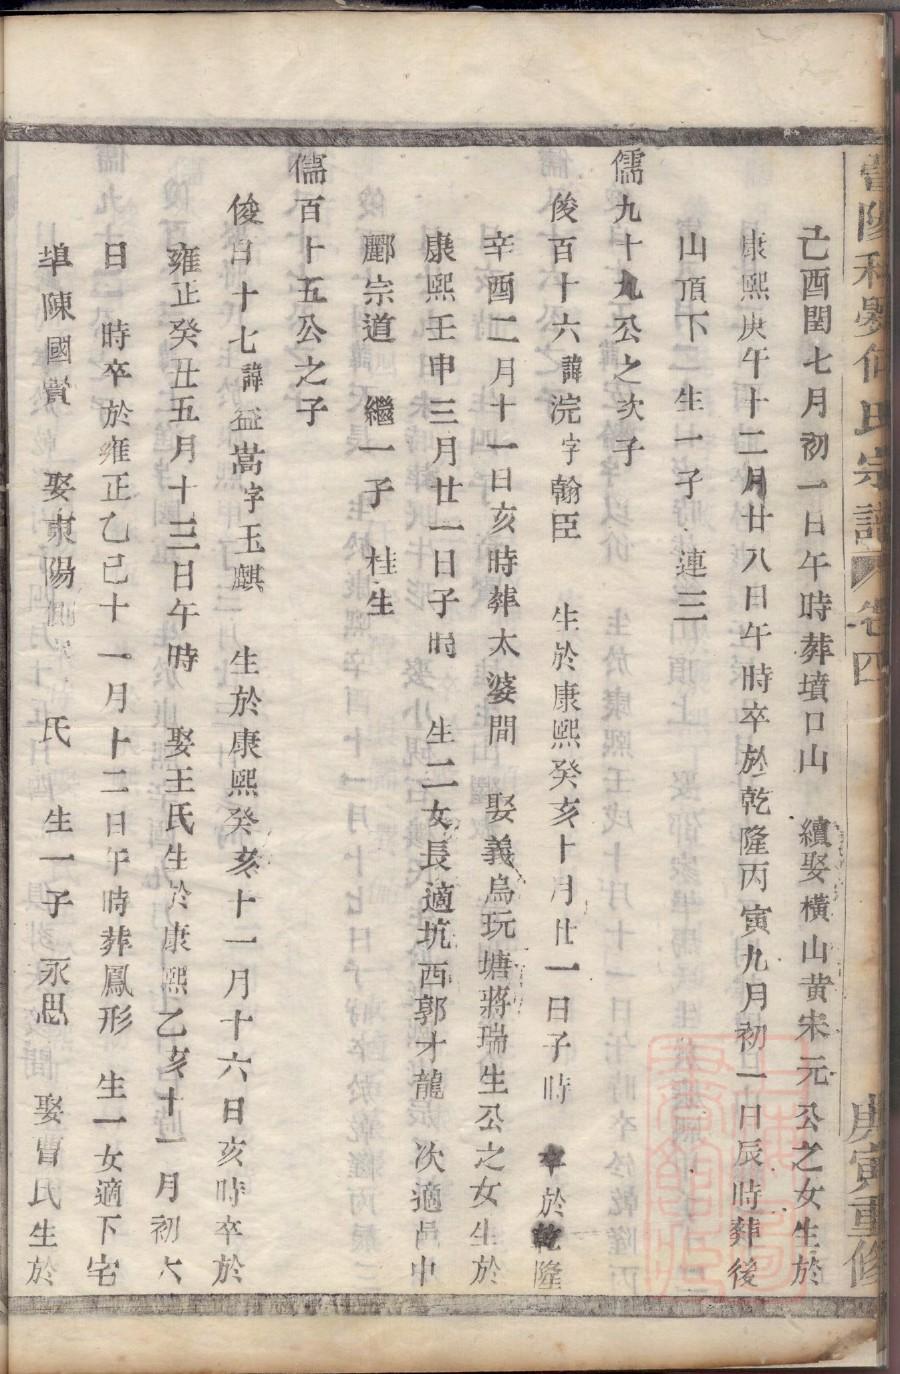 己酉閏七月初一日午時葬墳口山　續娶橫山黄宋元公之女生於
康熙庚午十二月廿八日午時卒於乾隆丙寅九月初一日辰時葬後
山頂下　生一子　連三
儒九十九公之次子
俊百十六諱浣字翰臣　生於康熙癸亥十月廿一日子時　卒於乾隆
辛酉二月十一日亥時葬太婆間　娶義烏玩塘蔣瑞生公之女生於
康熙壬申三月廿一日子時　生二女長適坑西郭才龍　次適邑中
酈宗道　繼一子　桂生
儒百十五公之子
俊百十七諱益嵩字玉麒　生於康熙癸亥十一月十六日亥時卒於
雍正癸丑五月十三日午時　娶王氏生於康熙乙亥十一月初六
日　時卒於雍正乙巳十一月十二日午時葬鳳形　生一女適下宅
埠陳國賞　娶東陽　氏　生一子　永思　娶曹氏生於
氏宗譜　卷四
庚寅重修